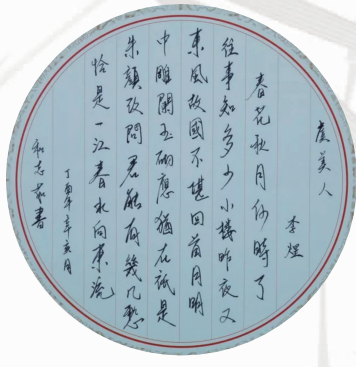 虞美人
李煜
春花秋月何時了
往事知多少小楼昨夜又
東風故國不堪回首月明
中雕闌玉砌應猶在祇是
朱顏改問君能有幾几愁
恰是一江春水向東流
丁酉年辛亥月
和志書